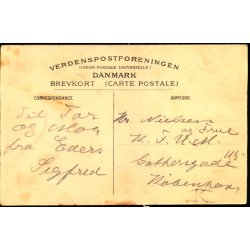 VERDENSPOSTFORENINGEN
(UNION POSTALE UNIVERSELLE)
DANMARK
BREVKORT (CARTE POSTALE)
CORRESPONDANCE.
ADRESSE.
Til Far
og Mor
fra Eders
Sigfred
Hr. Nielsen
og Frue
K. F. U. M.
Gothersgade 115
København